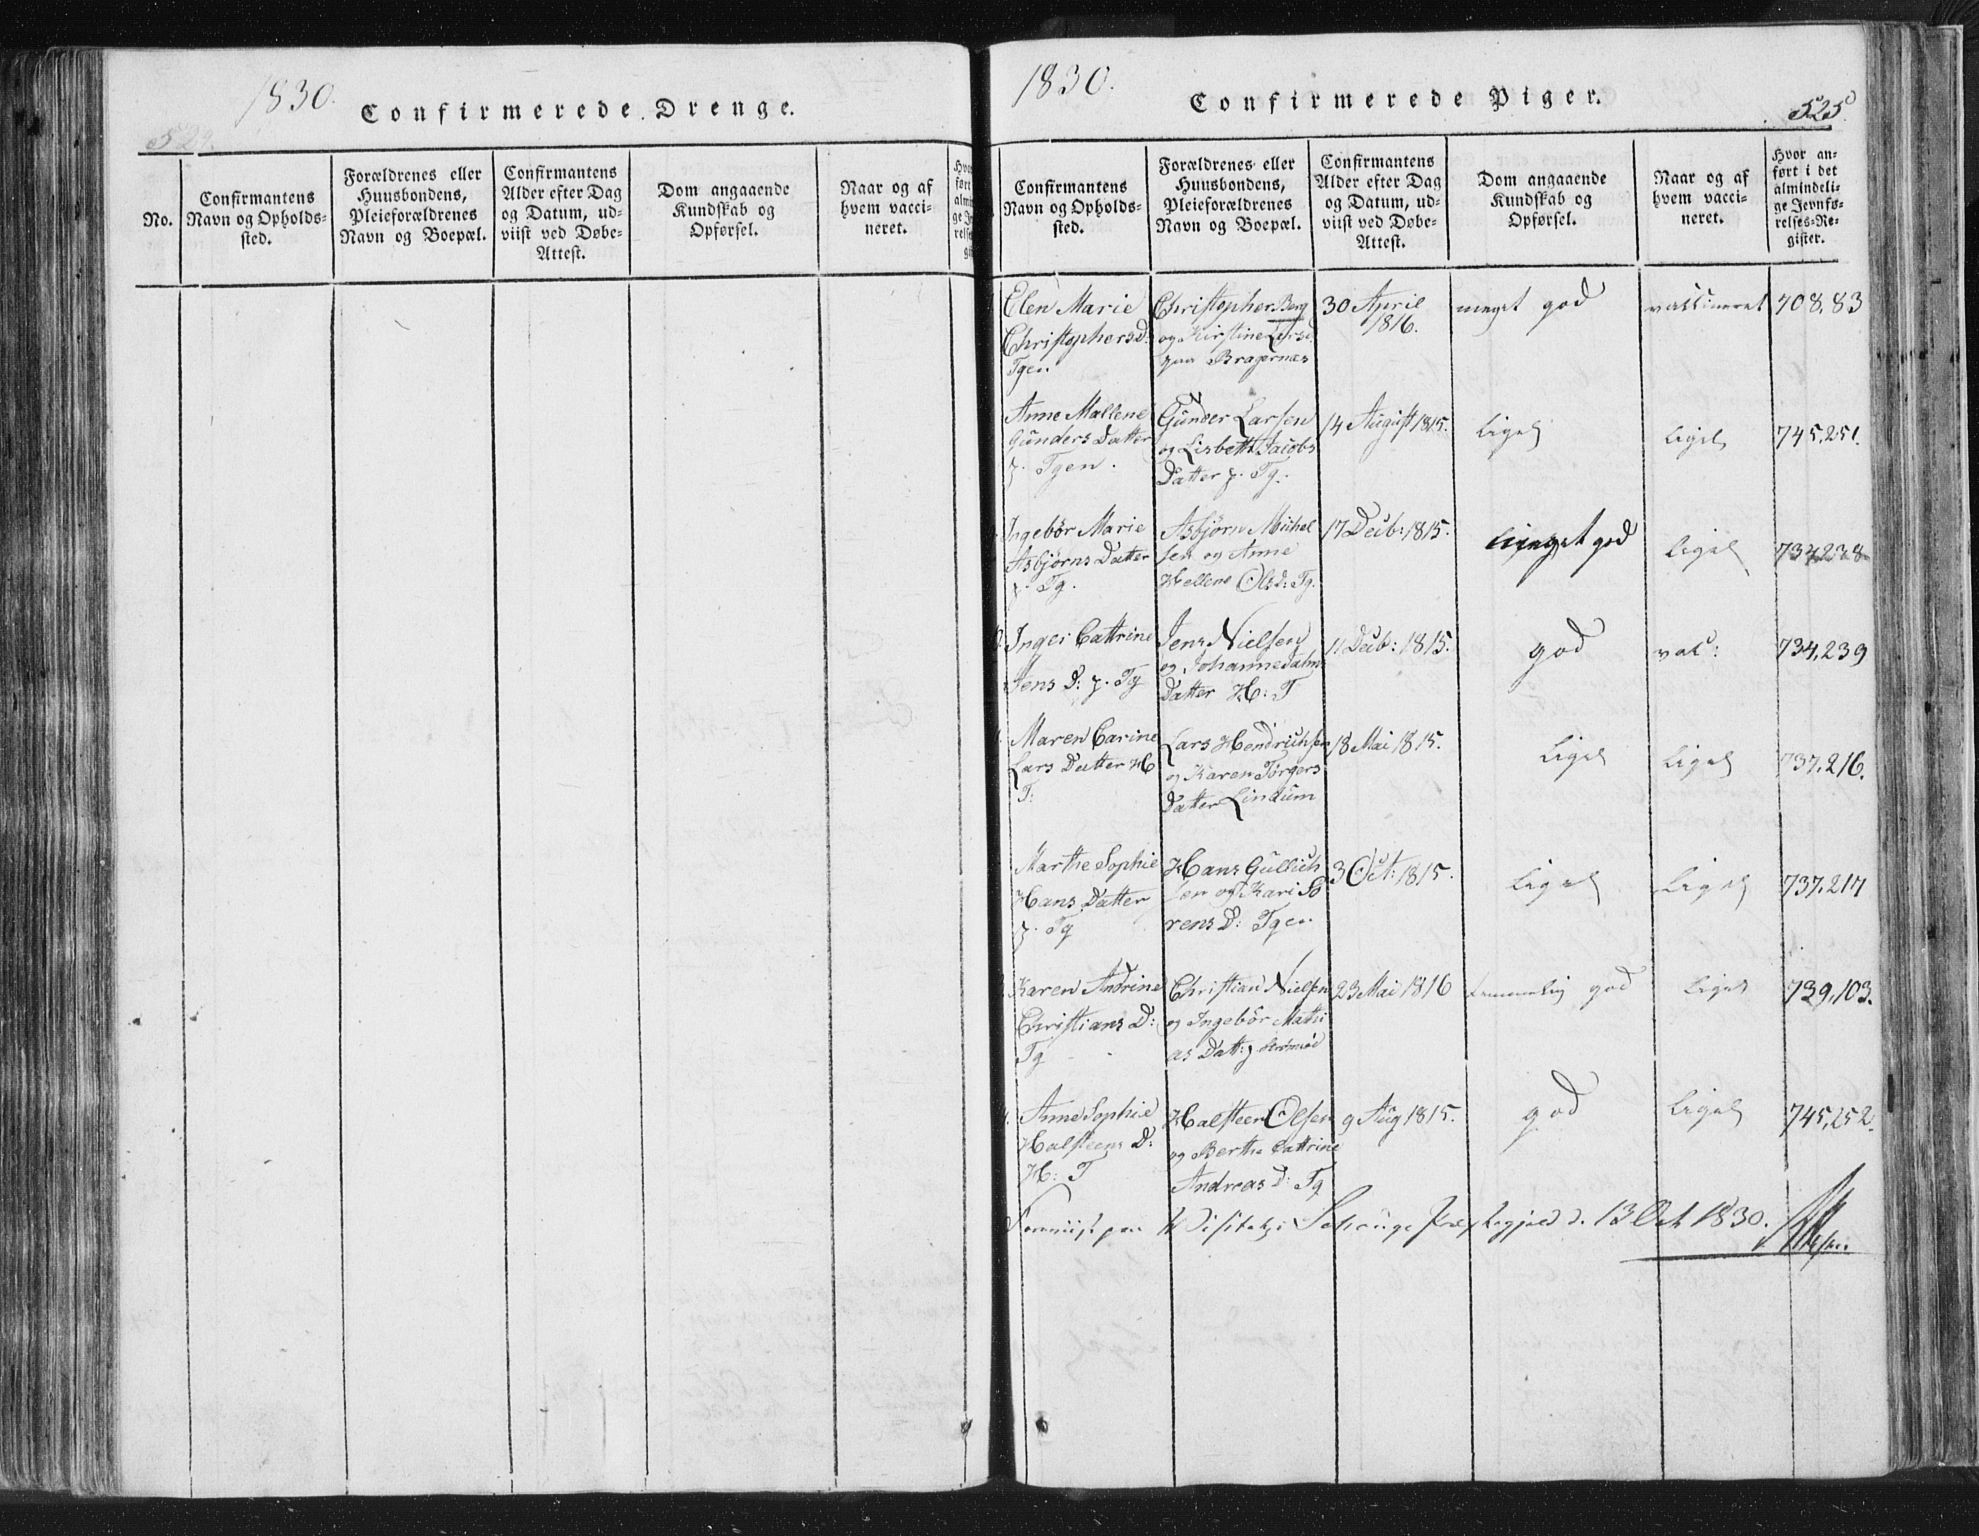 1830.
Confirmerede Drenge.
524.
No.
Confirmantens
Navn og Opholds-
sted.
Forældrenes eller
Huusbondens,
Pleieforældrenes
Navn og Boepæl.
Confirmantens
Alder efter Dag
og Datum, ud-
viist ved Døbe-
Attest.
Dom angaaende
Kundskab og
Opførsel.
Naar og af
hvem vacci-
neret.
1830.
Confirmerede Piger.
525
Confirmantens
Navn og Opholds-
sted.
Forældrenes eller
Huusbondens,
Pleieforældrenes
Navn og Boepæl.
Confirmantens
Alder efter Dag
og Datum, ud-
viist ved Døbe-
Attest.
Dom angaaende
Kundskab og
Opførsel.
Naar og af
hvem vacci-
neret.
Hvor an-
ført i det
almindeli-
ge Jevnfø-
relses-Re-
gister.
Elen Marie
Christophersd:
Tgen
Christopher Berg
og Kirstine Larsd
paa Bragernæs
30 April
1816.
meget god
vaccineret
708,83
Anne Mallene
Gunders Datter
p. Tgen.
Gunder Larsen
og Lisbeth Jacobs
Datter p. Tg.
14 August 1815.
ligel
ligel
745,251.
Ingebör Marie
Asbjørns Datter
p. Tg.
Asbjørn Michel
sen og Anne
Hellene Olsd: Tg.
17 Decb: 1815.
meget god
ligel
734,238
Inger Cattrine
Jens D: p. Tg
Jens Nielsen
og Johanne
Datter H: T
11 Decb: 1815.
god
vac:
734,239
Maren Carine
Lars Datter H
T:
Lars Hendrichsen
og Karen Törgers
Datter Lindum
18 Mai 1815.
ligel
ligel
737,216.
Marthe Sophie
Hans Datter
p. Tg
Hans Gullich
sen og Kari Sö
rens D: Tgen
3 Oct: 1815.
ligel
ligel
737,217
Karen Andrine
Christians D:
Tg
Christian Nielsen
og Ingebör Mathi
as Datt: p
23 Mai 1816
temmelig god
ligel
739,103.
Anne Sophie
Halsteens D:
H: T
Halsteen Olsen
og Berthe Cattrine
Andreas D: Tg
9 Aug 1815.
god
ligel
745,252.
Fremviist paa Visitatz i Præstegjeld d. 13 Oct 1830.